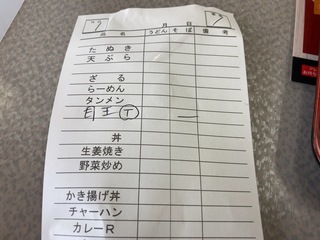 月 日
品名 うどん そば 備考
たぬき
天ぷら
ざる
らーめん
タンメン
丼
生姜焼き
野菜炒め
かき揚げ丼
チャーハン
カレーR